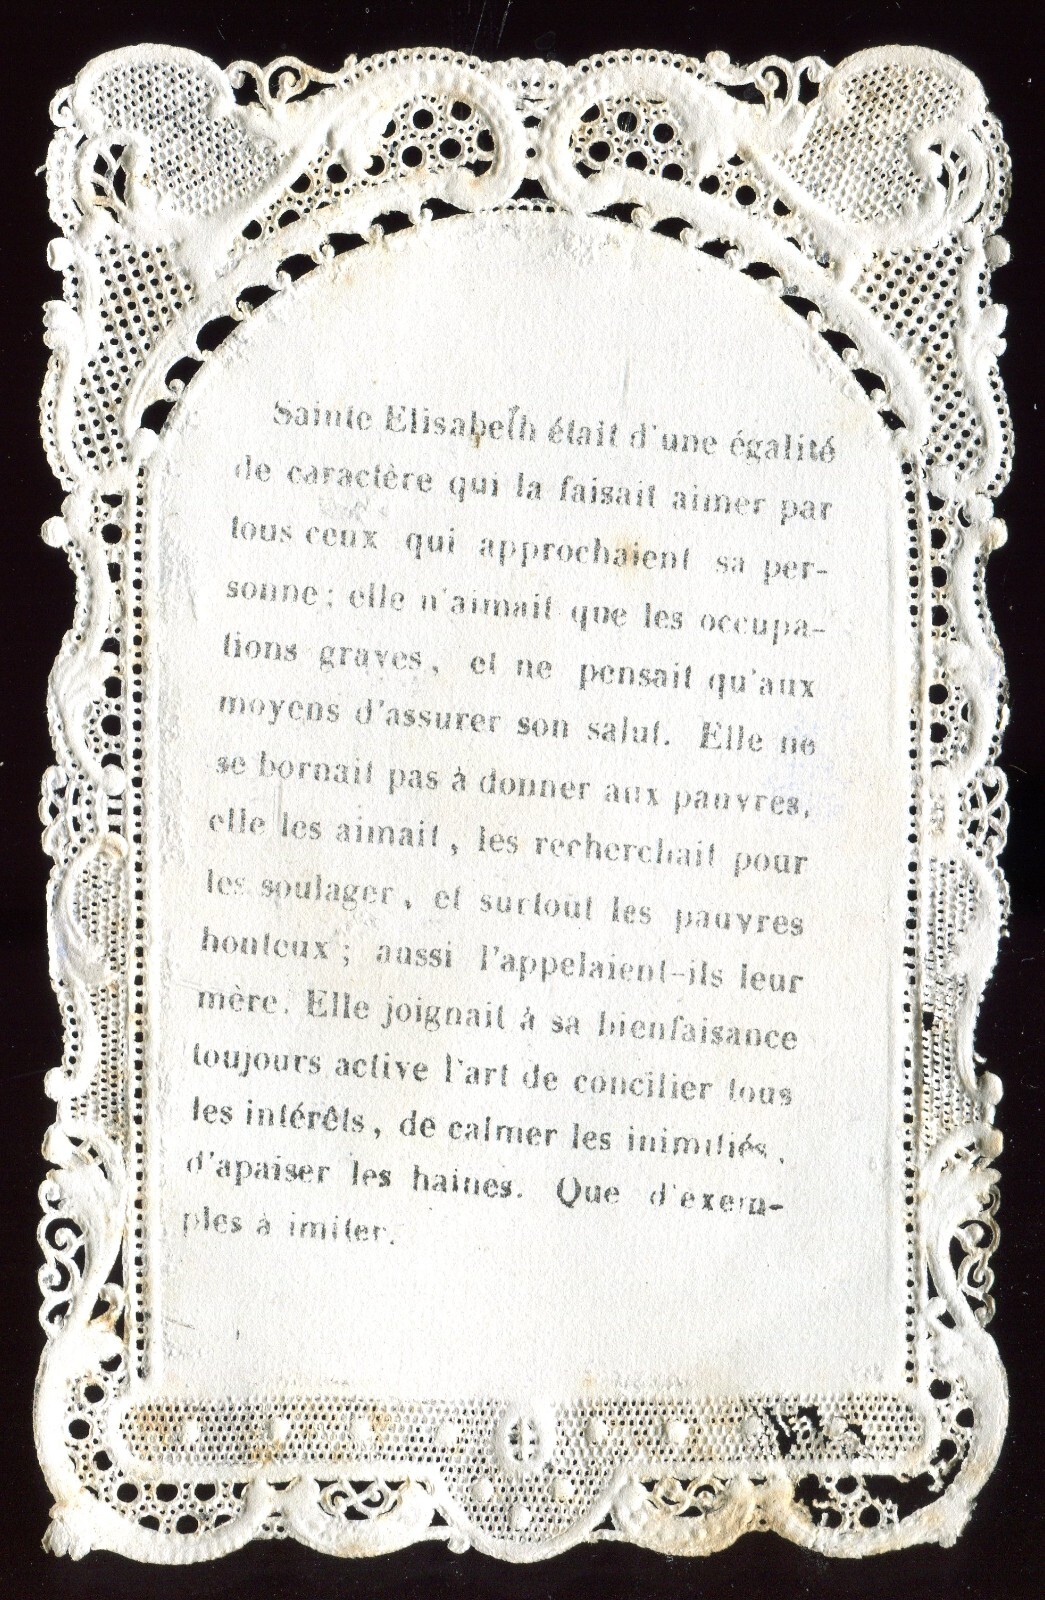 Sainte Elisabeth était d'une égalité
de caractère qui la faisait aimer par
tous ceux qui approchaient sa per-
sonne ; elle n'aimait que les occupa-
tions graves, et ne pensait qu'aux
moyens d'assurer son salut. Elle ne
se bornait pas à donner aux pauvres,
elle les aimait, les recherchait pour
les soulager, et surtout les pauvres
honteux ; aussi l'appelaient-ils leur
mère. Elle joignait à sa bienfaisance
toujours active l'art de concilier tous
les intérêts, de calmer les inimitiés,
d'apaiser les haines. Que d'exem-
ples à imiter.